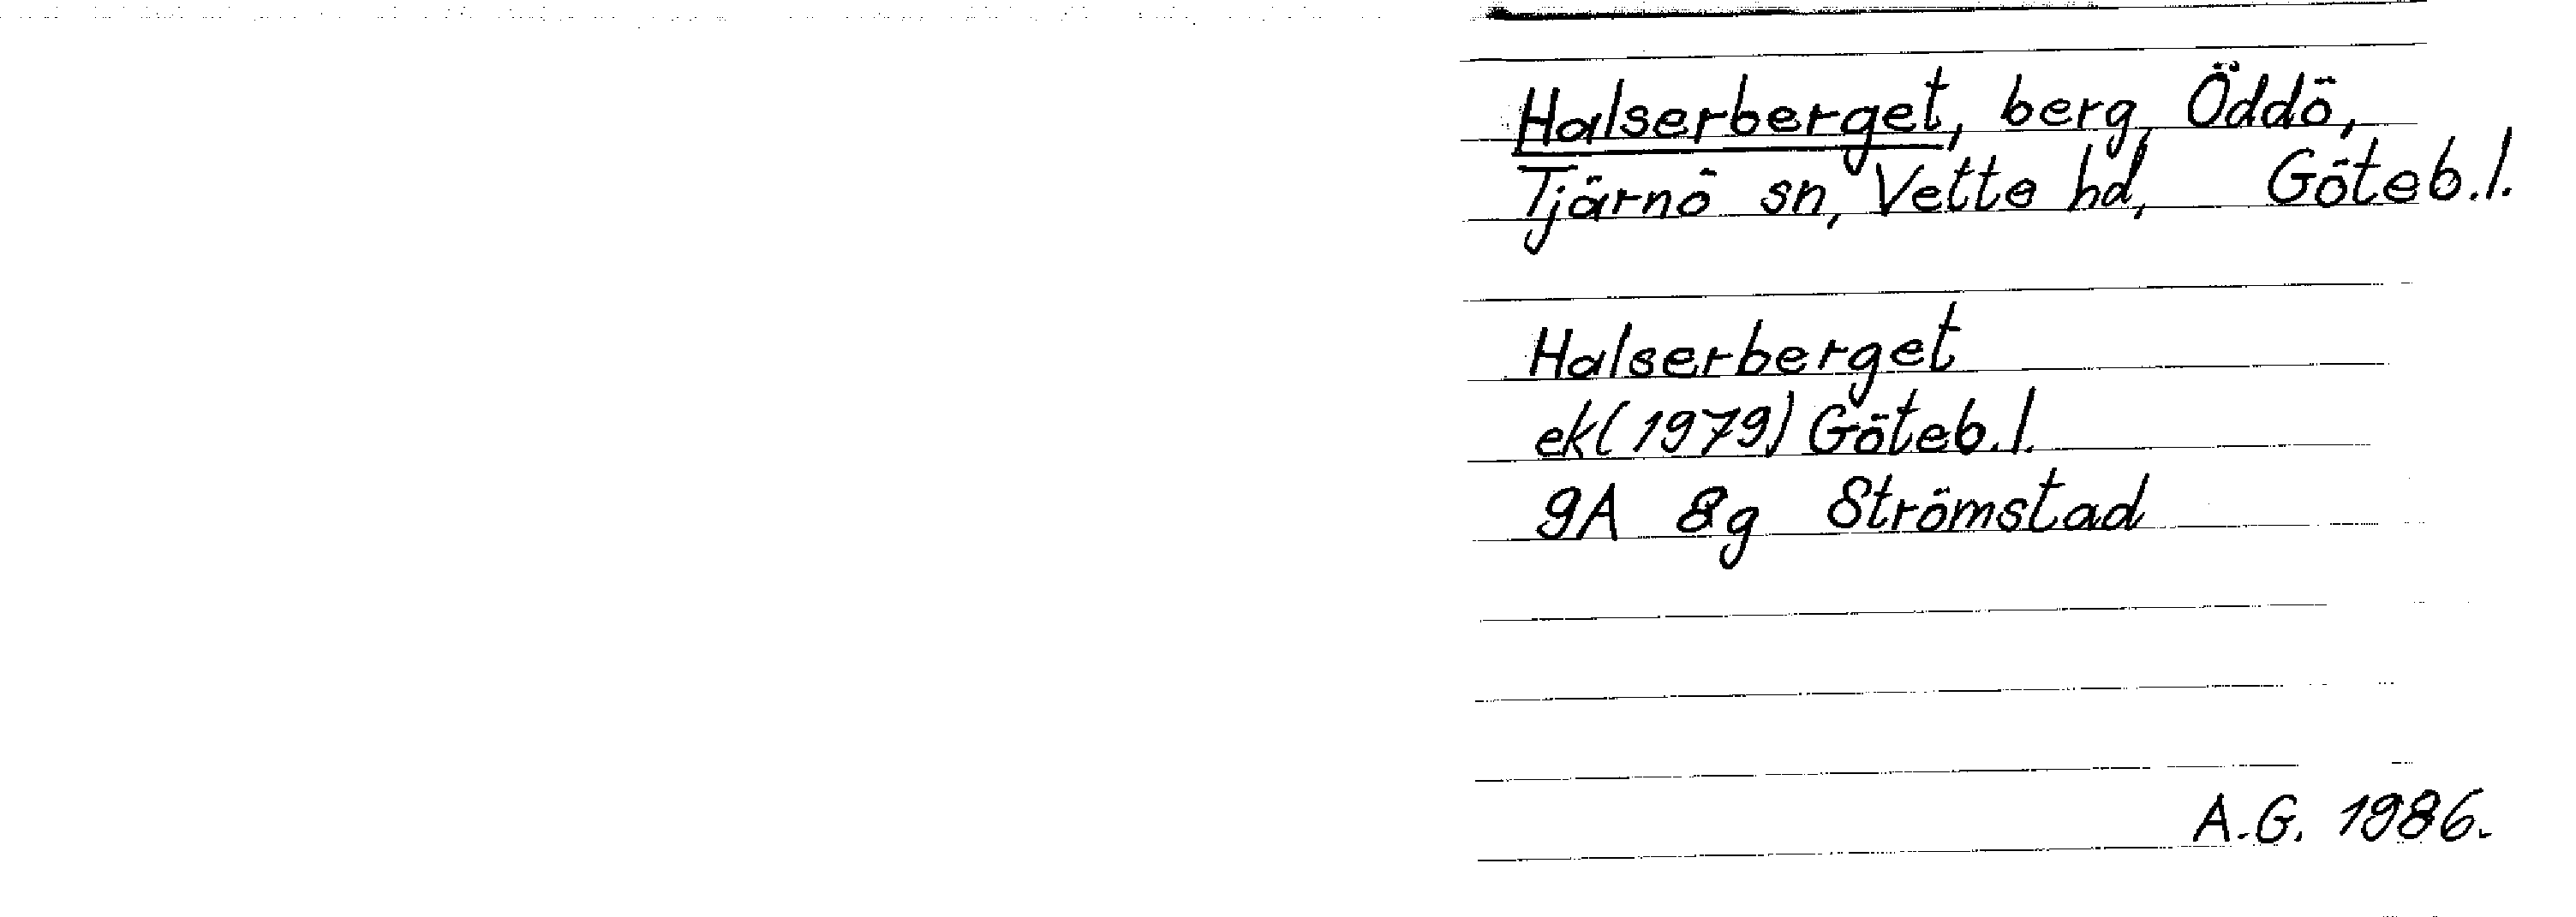 Halserberget, berg, Öddö,
Tjärnö sn, Vette hd, Göteb.l.
Halserberget
ek(1979) Göteb.l.
9A 8g Strömstad
A.G. 1986.